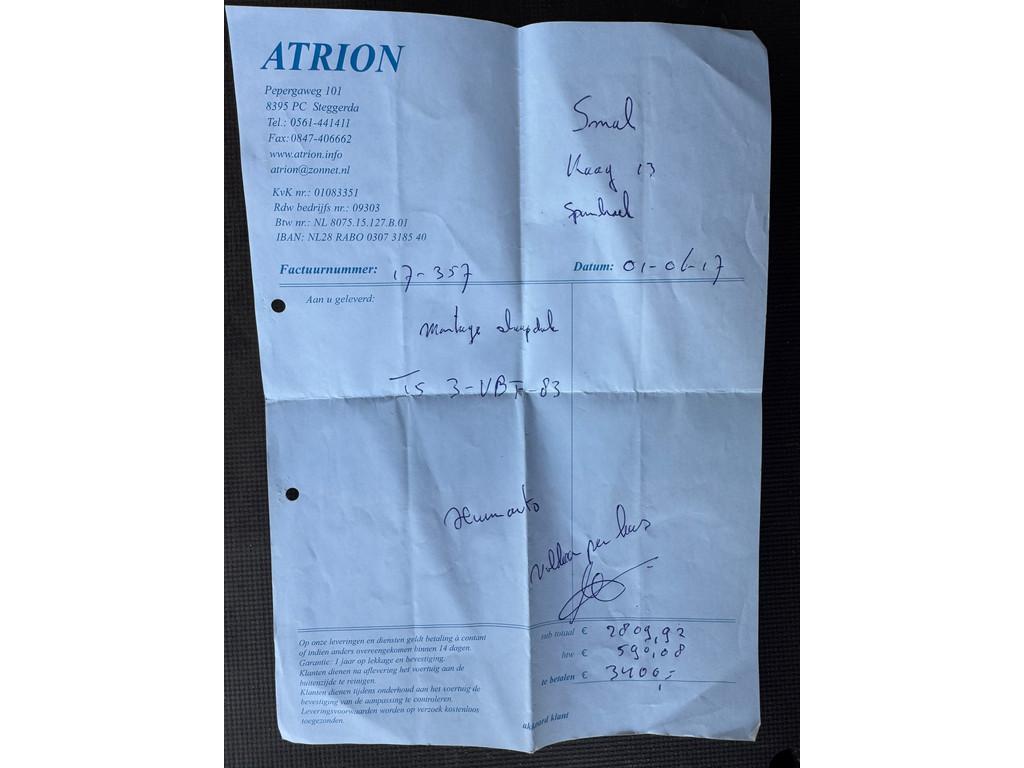 ATRION
Pepergaweg 101
8395 PC Steggerda
Tel.: 0561-441411
Fax: 0847-406662
www.atrion.info
atrion@zonnet.nl
KvK nr.: 01083351
Rdw bedrijfs nr.: 09303
Btw nr.: NL 8075.15.127.B.01
IBAN: NL28 RABO 0307 3185 40
Smal
Kaag 13
Factuurnummer: 17-357
Datum: 01-06-17
Aan u geleverd:
Montage slaapdak
T5 3-VBT-83
Voldaan per kas
sub totaal € 2809,92
btw € 590,08
te betalen € 3400,-
Op onze leveringen en diensten geldt betaling à contant
of indien anders overeengekomen binnen 14 dagen.
Garantie: 1 jaar op lekkage en bevestiging.
Klanten dienen na aflevering het voertuig aan de
buitenzijde te reinigen.
Klanten dienen tijdens onderhoud aan het voertuig de
bevestiging van de aanpassing te controleren.
Leveringsvoorwaarden worden op verzoek kosteloos
toegezonden.
akkoord klant